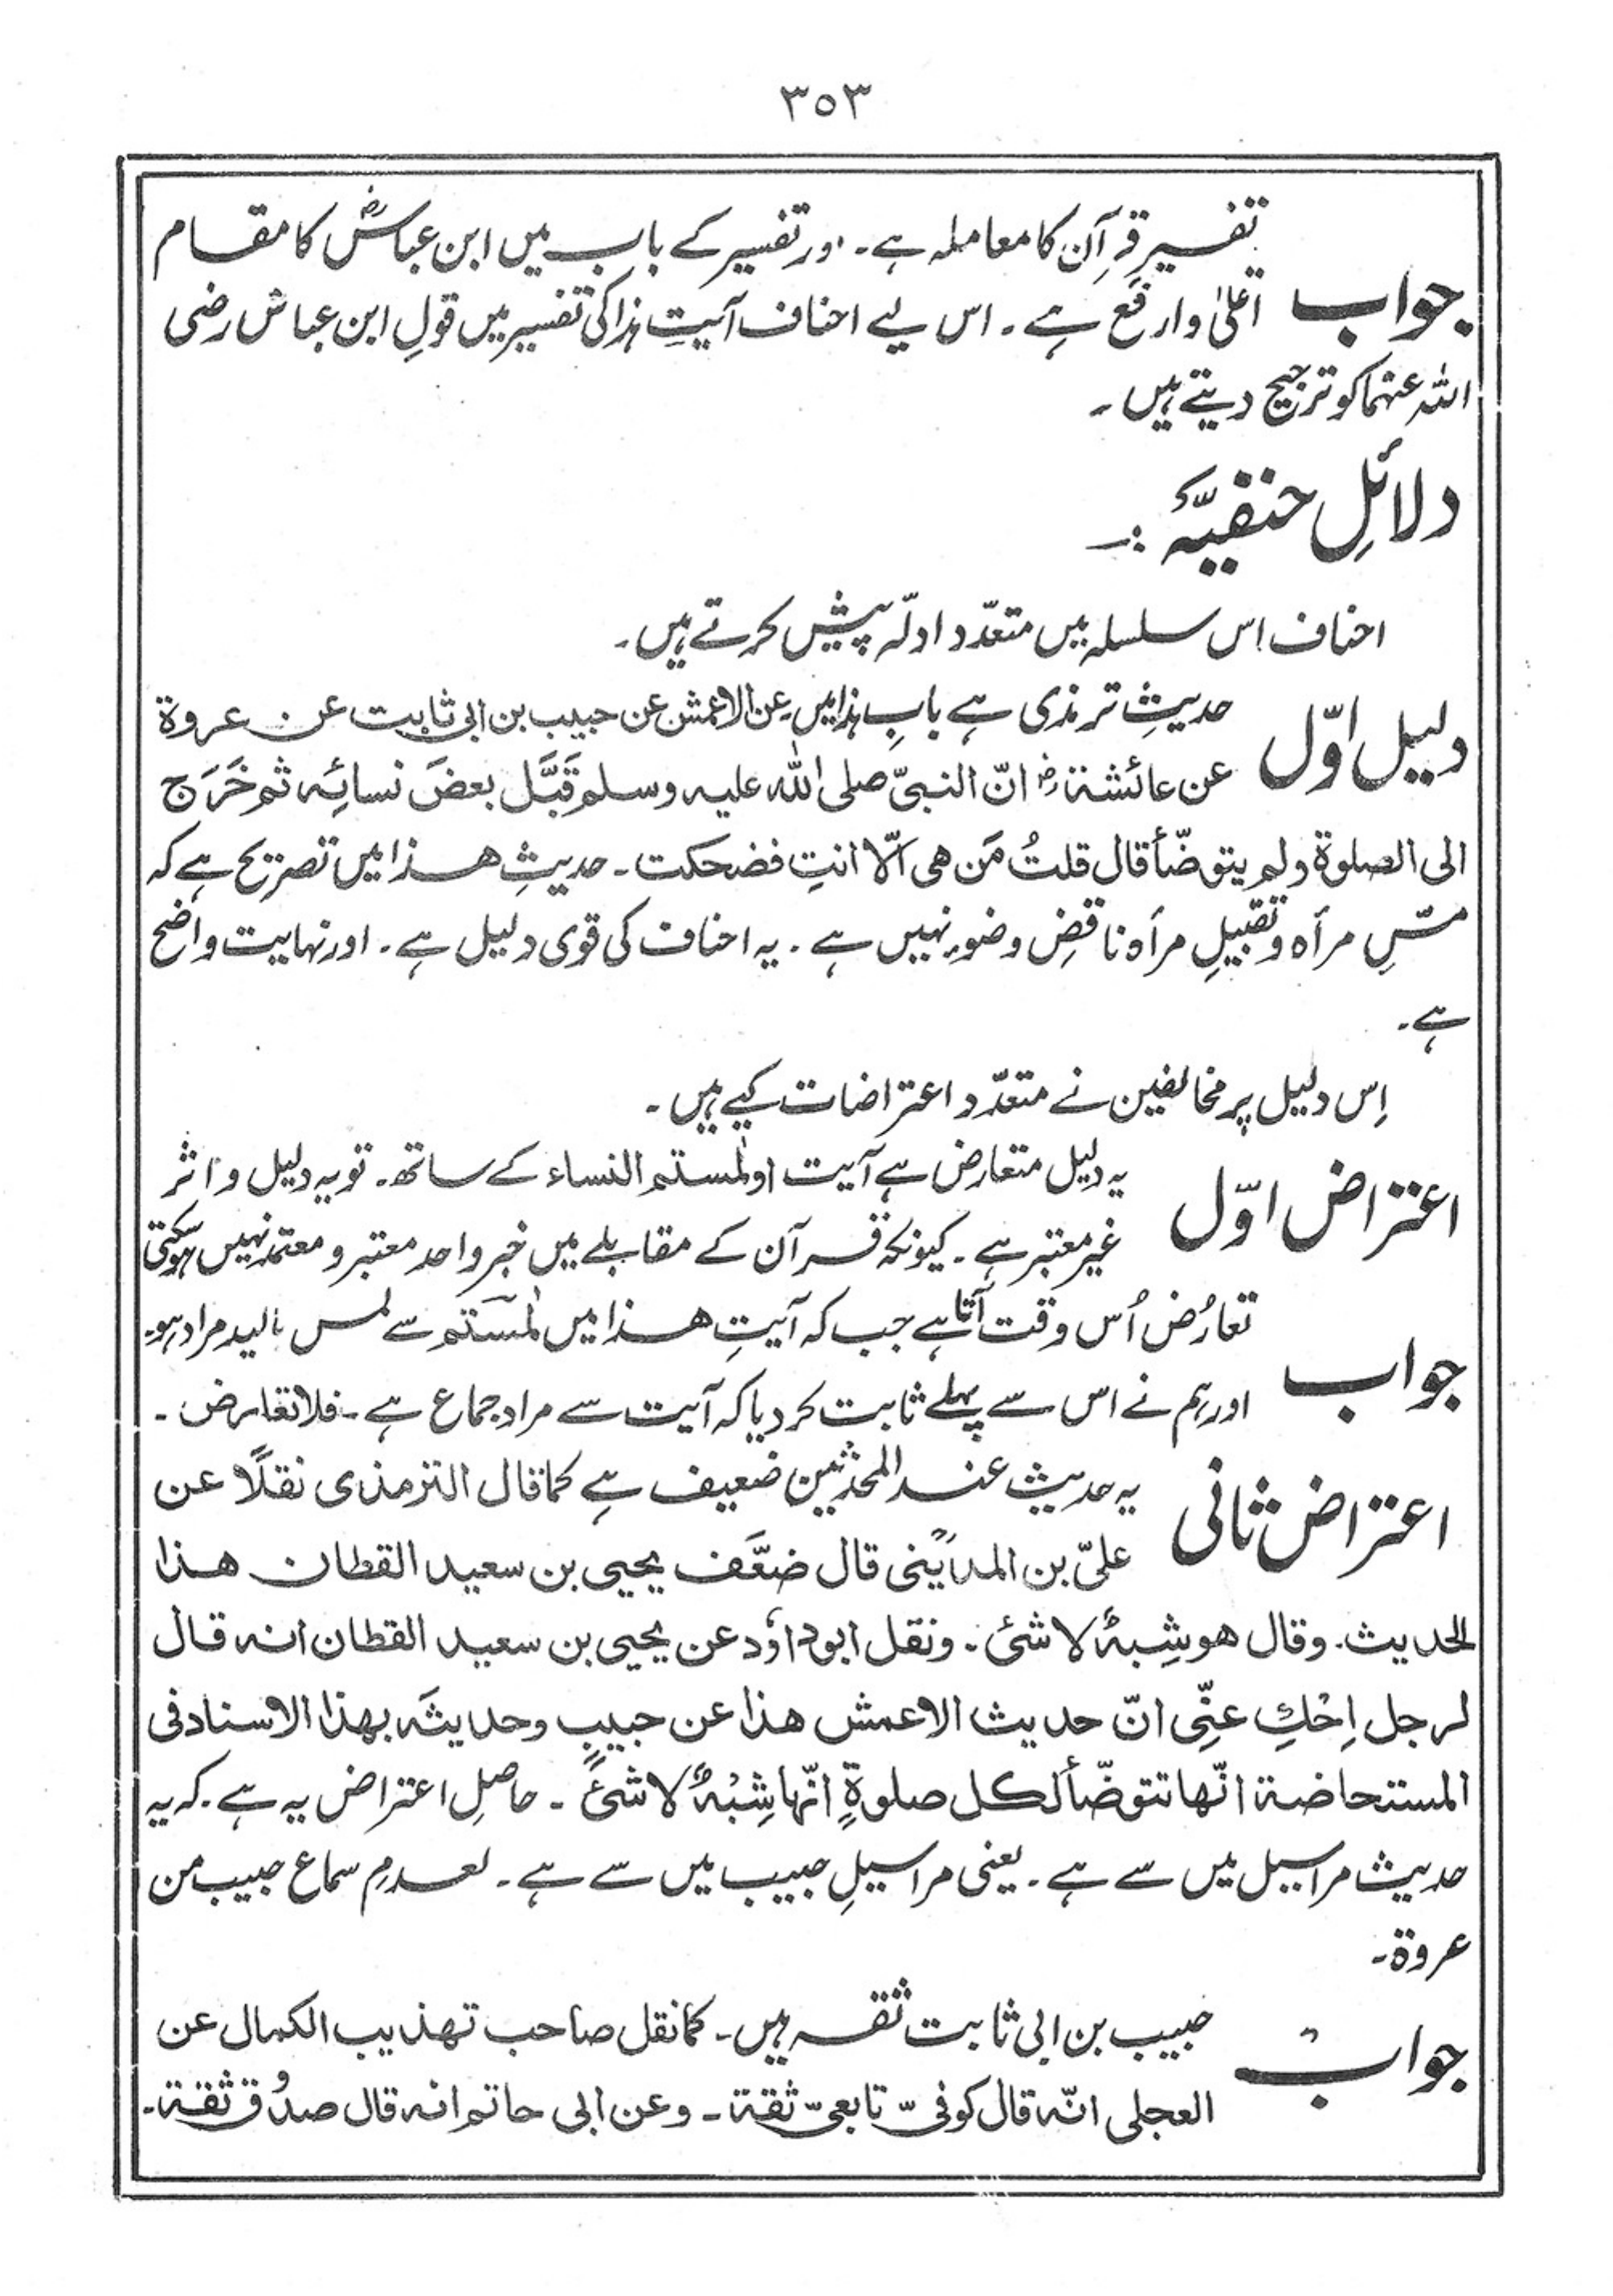 ٣٥٣
تفسیرِ قرآن کا معاملہ ہے۔ اور تفسیر کے باب میں ابن عباسؓ کا مقام
جواب
اعلیٰ وارفع ہے۔ اس لیے احناف آیتِ ہذا کی تفسیر میں قولِ ابن عباس رضی
اللہ عنہما کو ترجیح دیتے ہیں۔
دلائلِ حنفیّہ :۔
احناف اس سلسلہ میں متعدّد ادلّہ پیش کرتے ہیں۔
دلیل اوّل
حدیثِ ترمذی ہے بابِ ہذا میں۔ عن الاعمش عن حبیب بن ابی ثابت عن عروة
عن عائشة رضؓ انّ النبیّ صلی اللہ علیہ وسلم قَبَّل بعضَ نسائِہ ثم خَرَج
الی الصلوة ولم یتوضّأ قال قلتُ مَن ھی الّا انتِ فضحکت۔ حدیثِ ھذا میں تصریح ہے کہ
مسِّ مرأہ و تقبیلِ مرأہ ناقضِ وضوء نہیں ہے۔ یہ احناف کی قوی دلیل ہے۔ اور نہایت واضح
ہے۔
اِس دلیل پر مخالفین نے متعدّد اعتراضات کیے ہیں۔
اعتراض اوّل
یہ دلیل متعارض ہے آیت اولٰمستم النساء کے ساتھ۔ تو یہ دلیل و اثر
غیر معتبر ہے۔ کیونکہ قرآن کے مقابلے میں خبر واحد معتبر و معتمد نہیں ہوسکتی
تعارُض اُس وقت آتا ہے جب کہ آیتِ ھذا میں لٰمستم سے لمس بالید مراد ہو۔
جواب
اور ہم نے اس سے پہلے ثابت کردیا کہ آیت سے مراد جماع ہے۔ فلا تعارض۔
اعتراض ثانی
یہ حدیث عند المحدّثین ضعیف ہے کما قال الترمذی نقلًا عن
علیّ بن المدینی قال ضعَّف یحیی بن سعید القطان ھذا
الحدیث۔ وقال ھو شِبہُ لا شیٔ۔ ونقل ابوداؤد عن یحیی بن سعید القطان انہ قال
لرجل اِحْکِ عنِّی انّ حدیث الاعمش ھذا عن حبیبٍ وحدیثَہ بھذا الاسناد فی
المستحاضة انّھا تتوضّأ لکل صلوةٍ انّھا شِبْہُ لا شیٔ۔ حاصلِ اعتراض یہ ہے۔ کہ یہ
حدیث مراسیل میں سے ہے۔ یعنی مراسیلِ حبیب میں سے ہے۔ لعدمِ سماع حبیب من
عروة۔
حبیب بن ابی ثابت ثقہ ہیں۔ کما نقل صاحب تھذیب الکمال عن
جواب
العجلی انّہ قال کوفیّ تابعیّ ثقة۔ وعن ابی حاتم انہ قال صدُوق ثقة۔